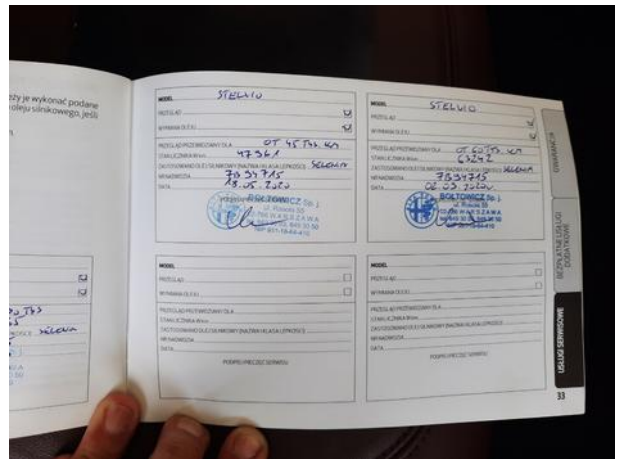 eży je wykonać podane
oleju silnikowego, jeśli
MODEL STELVIO
PRZEGLĄD
WYMIANA OLEJU
PRZEGLĄD PRZEWIDZIANY DLA OT 45 TYS. KM
STAN LICZNIKA W km 47361
ZASTOSOWANO OLEJ SILNIKOWY (NAZWA I KLASA LEPKOŚCI) SELENIA
NR NADWOZIA 7B94715
DATA 18.05.2020
BOŁTOWICZ Sp. j.
MODEL STELVIO
PRZEGLĄD
WYMIANA OLEJU
PRZEGLĄD PRZEWIDZIANY DLA OT 60 TYS. KM
STAN LICZNIKA W km 63242
ZASTOSOWANO OLEJ SILNIKOWY (NAZWA I KLASA LEPKOŚCI) SELENIA
NR NADWOZIA 7B94715
DATA
BOŁTOWICZ Sp. j.
SELENIA
MODEL
PRZEGLĄD
WYMIANA OLEJU
PRZEGLĄD PRZEWIDZIANY DLA
STAN LICZNIKA W km
ZASTOSOWANO OLEJ SILNIKOWY (NAZWA I KLASA LEPKOŚCI)
NR NADWOZIA
DATA
PODPIS I PIECZĘĆ SERWISU
MODEL
PRZEGLĄD
WYMIANA OLEJU
PRZEGLĄD PRZEWIDZIANY DLA
STAN LICZNIKA W km
ZASTOSOWANO OLEJ SILNIKOWY (NAZWA I KLASA LEPKOŚCI)
NR NADWOZIA
DATA
PODPIS I PIECZĘĆ SERWISU
GWARANCJA
BEZPŁATNE USŁUGI
DODATKOWE
USŁUGI SERWISOWE
33